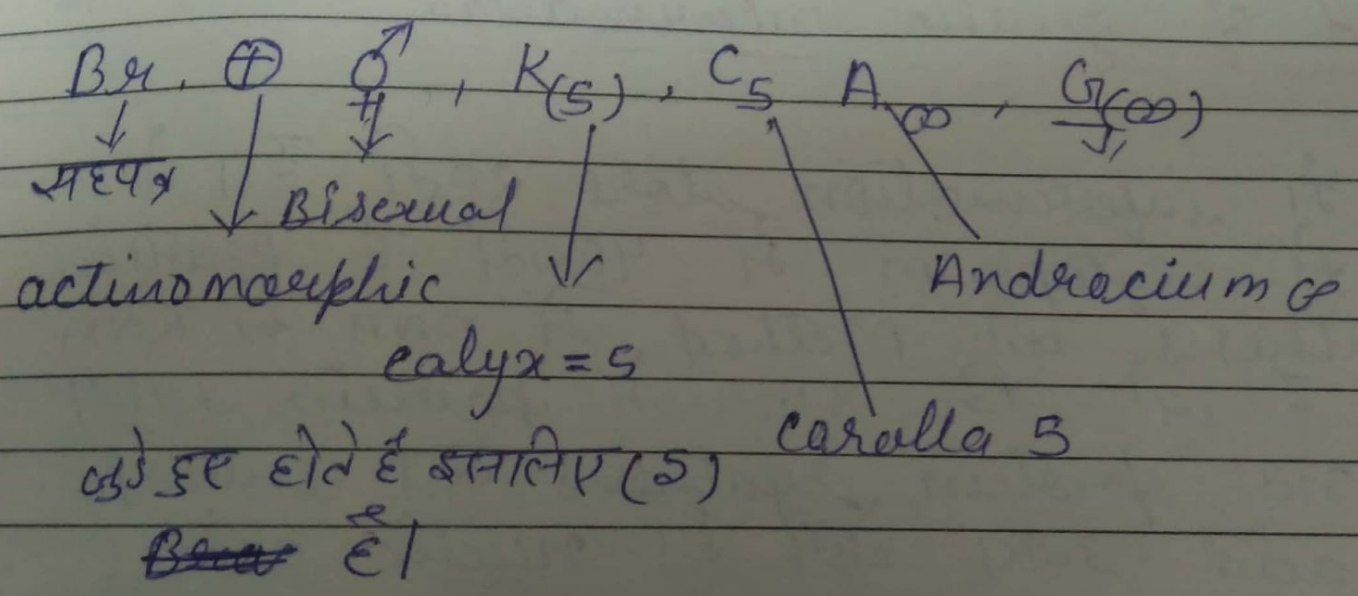 Br. ⊕ ⚥, K(5), C5 A∞, G(∞)
सहपत्र
Bisexual
actinomorphic
Andracium ∞
calyx = 5
caralla 5
जुडे हुए होते है इसलिए (5)
है।